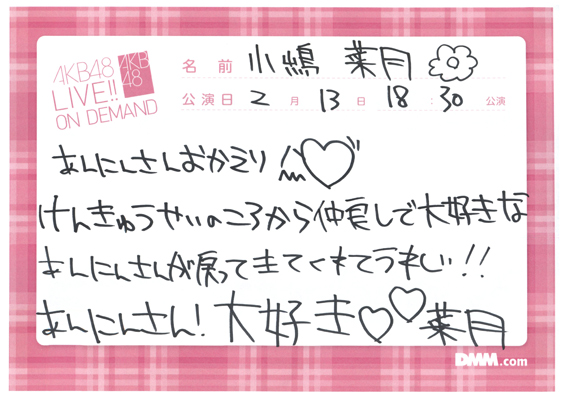 AKB48
LIVE!!
ON DEMAND
AKB
48
名前 小嶋 菜月
公演日 2月13日 18:30公演
あんにんさんおかえり
けんきゅうせいのころから仲良しで大好きな
あんにんさんが戻ってきてくれてうれしい!!
あんにんさん!大好き♡♡菜月
DMM.com